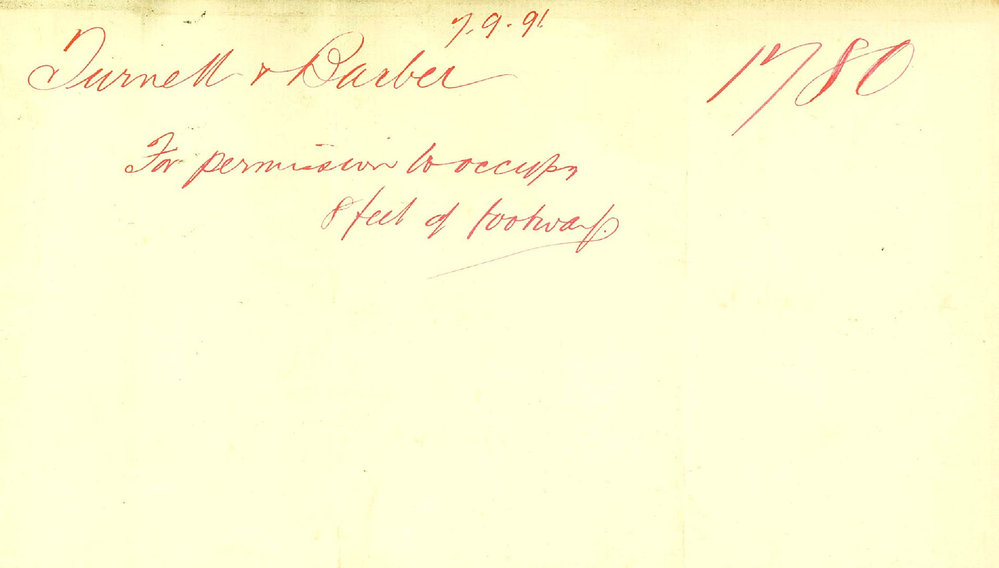 7.9.91
Turnell & Barber 1780
For permission to occupy
8 feet of footway.